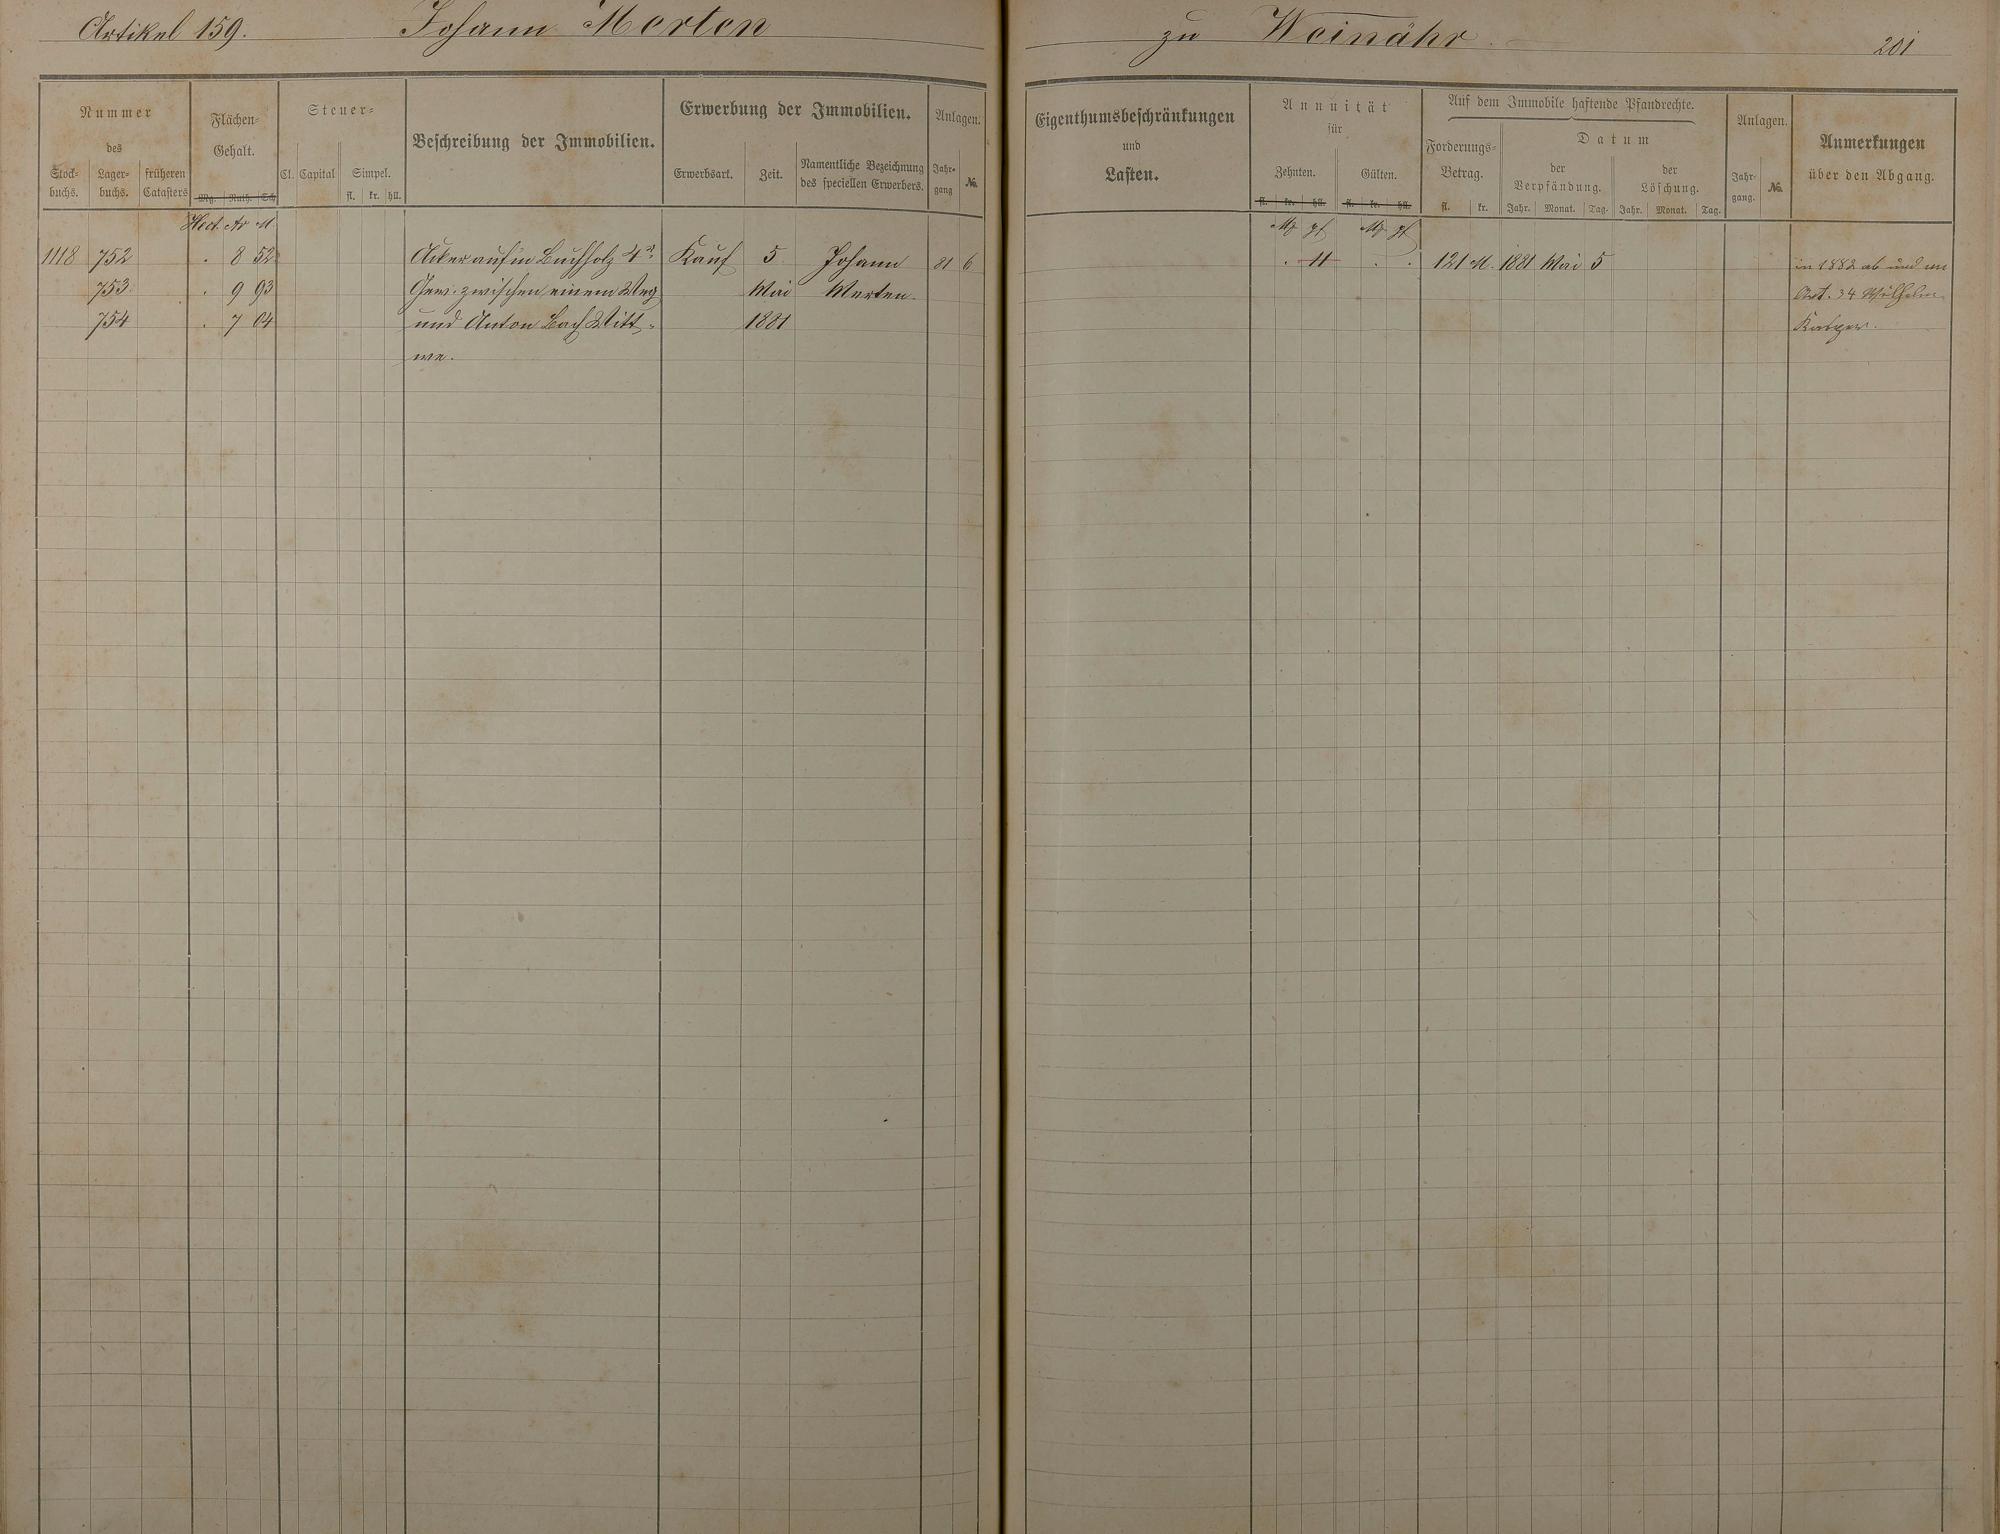 Artikel 159. Johann Merten zu Weinähr. 201
Nummer
des
Stock-
buchs.
Lager-
buchs.
früheren
Catasters
Flächen-
Gehalt.
Mg. Ruth. Sch
Steuer-
Cl. Capital
Simpel.
fl. kr. hll.
Beschreibung der Immobilien.
Erwerbung der Immobilien.
Erwerbsart.
Zeit.
Namentliche Bezeichnung
des speciellen Erwerbers.
Anlagen.
Jahr-
gang
No.
Eigenthumsbeschränkungen
und
Lasten.
Annuität
für
Zehnten.
Gülten.
fl. kr. hll. fl. kr. hll.
Auf dem Immobile haftende Pfandrechte.
Forderungs-
Betrag.
fl. kr.
Datum
der
Verpfändung.
Jahr. Monat. Tag.
der
Löschung.
Jahr. Monat. Tag.
Anlagen.
Jahr-
gang.
No.
Anmerkungen
über den Abgang.
Hect. Ar M. Mk pf Mk pf
1118 752 . 8 52 Acker auf'm Buchholz 4r Kauf 5 Johann 81 6 . 11 . . 121 M. 1881 Mai 5 in 1882 ab und an
753 . 9 93 Gew. zwischen einem Weg Mai Merten. Art. 34 Wilhelm
754 . 7 04 und Anton Bach Witt- 1881 Kasper.
we.